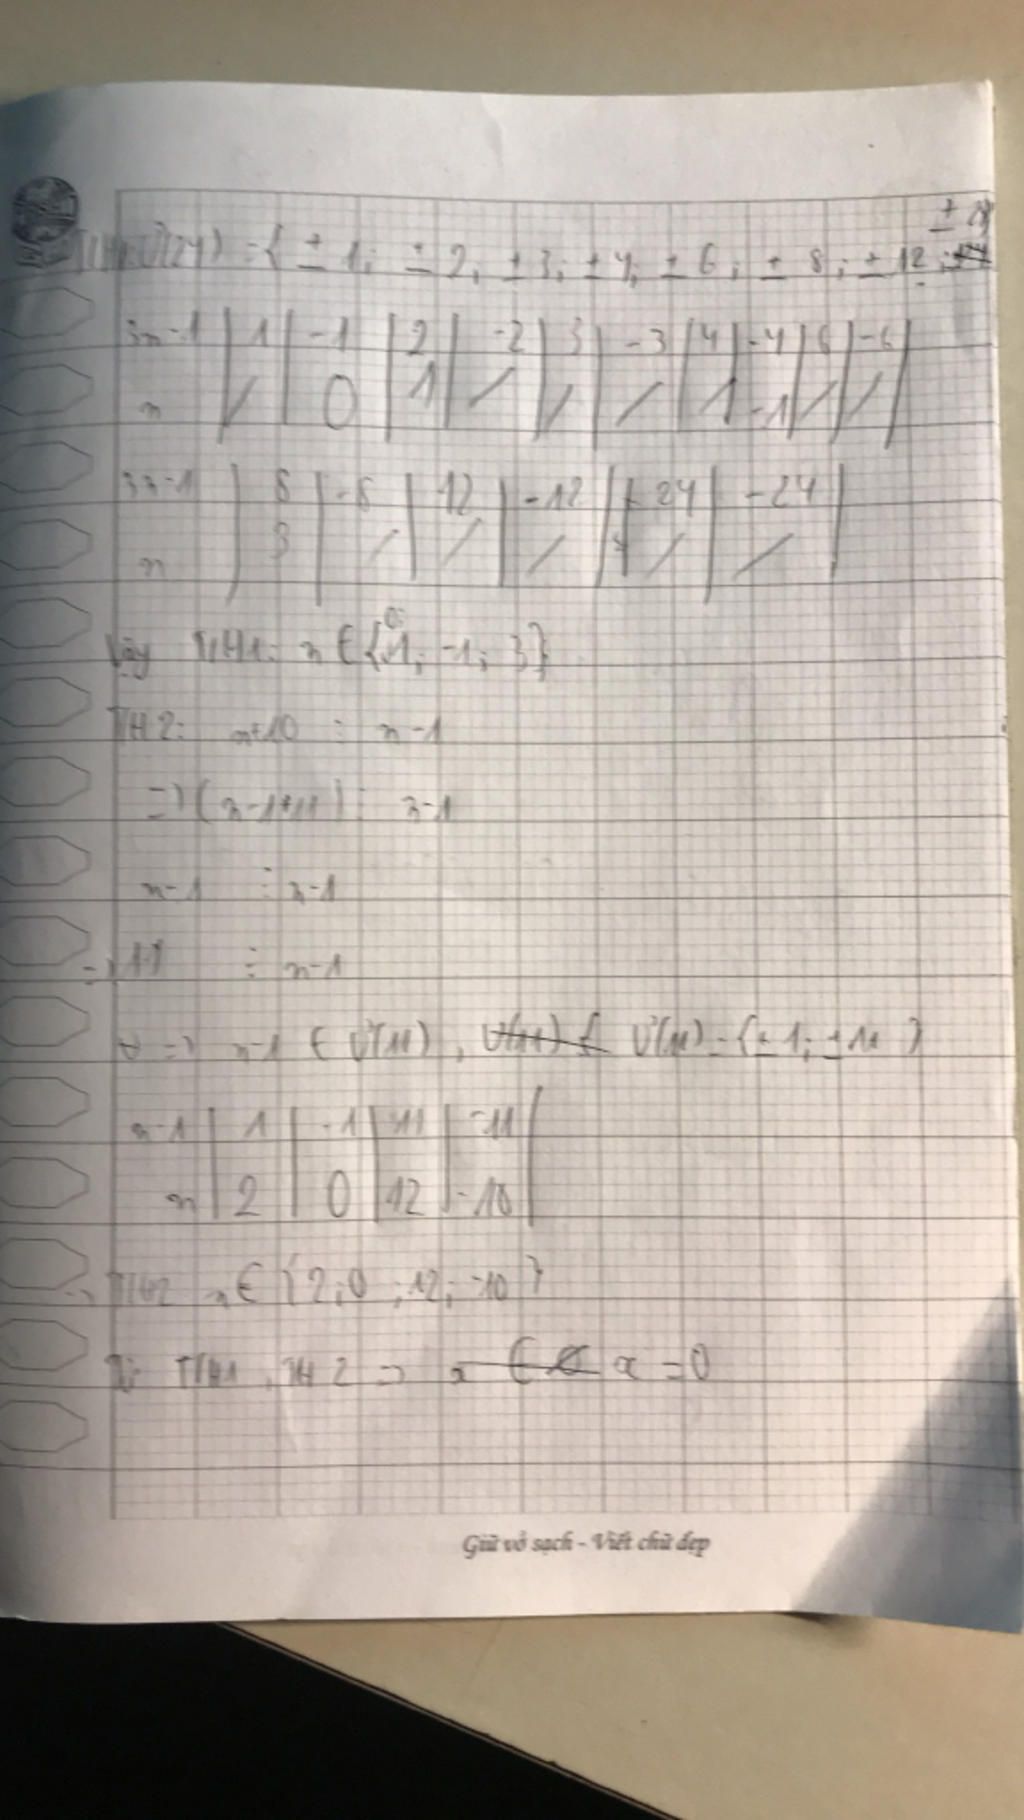 Ư(24) = { ± 1; ± 2; ± 3; ± 4; ± 6; ± 8; ± 12; ± 24
3n-1 | 1 | -1 | 2 | -2 | 3 | -3 | 4 | -4 | 6 | -6 |
n | / | 0 | 1 | / | / | / | 1 | -1 | / | / |
3n-1 | 8 | -8 | 12 | -12 | 24 | -24 |
n | 3 | / | / | / | / | / |
Vậy TH1: n ∈ {0; 1; -1; 3}
TH2: n+10 ⋮ n-1
=> (n-1+11) ⋮ n-1
n-1 ⋮ n-1
=> 11 ⋮ n-1
=> n-1 ∈ Ư(11), Ư(11) = {± 1; ± 11 }
n-1 | 1 | -1 | 11 | -11 |
n | 2 | 0 | 12 | -10 |
TH2 n ∈ {2; 0; 12; -10 }
Từ TH1, TH2 => x = 0
Giữ vở sạch - Viết chữ đẹp